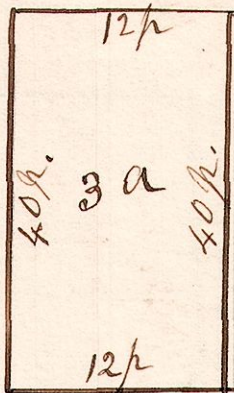 12p
40p.
3 a
40p.
12p